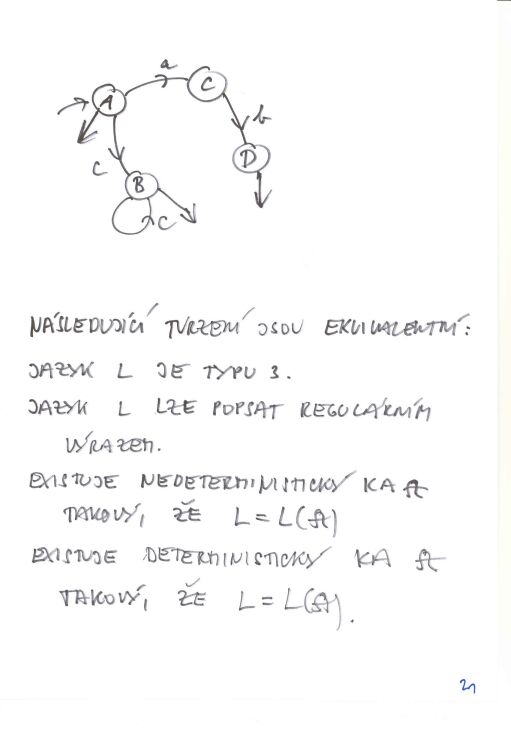 a
A
C
b
c
D
B
c
NÁSLEDUJÍCÍ TVRZENÍ JSOU EKVIVALENTNÍ:
JAZYK L JE TYPU 3.
JAZYK L LZE POPSAT REGULÁRNÍM
VÝRAZEM.
EXISTUJE NEDETERMINISTICKÝ KA A
TAKOVÝ, ŽE L = L(A)
EXISTUJE DETERMINISTICKÝ KA A
TAKOVÝ, ŽE L = L(A).
21